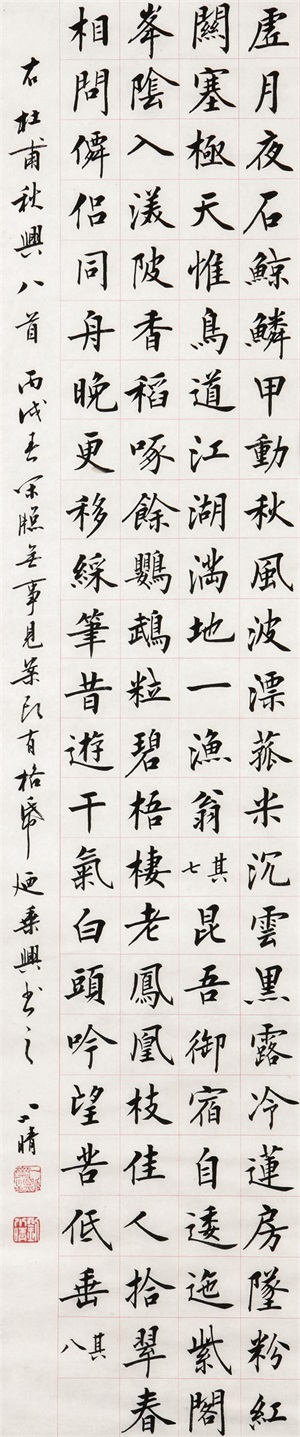 虛月夜石鯨鱗甲動秋風波漂菰米沉雲黑露冷蓮房墜粉紅
關塞極天惟鳥道江湖滿地一漁翁其七昆吾御宿自逶迤紫閣
峯陰入渼陂香稻啄餘鸚鵡粒碧梧棲老鳳凰枝佳人拾翠春
相問僊侶同舟晚更移綵筆昔遊干氣白頭吟望苦低垂其八
右杜甫秋興八首丙戌春閒暇無事見案頭有格帋廼乘興書之小晴